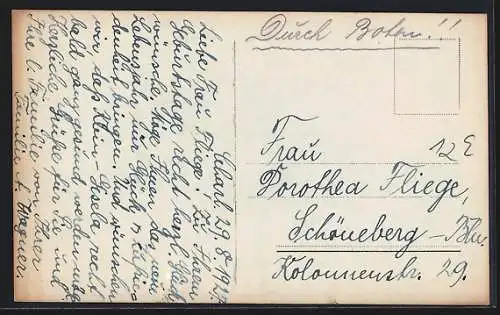 Charl. 29.8.1927
Liebe Frau Fliege! Zu Ihrem
Geburtstage recht herzl. Glück-
wünsche. Möge Ihnen das neue
Lebensjahr nur Glück u. Zufrie-
denheit bringen. Und wünschen
wir daß Ihre Gisela recht
bald ganz gesund werden möge.
Herzliche Grüße für Sie und
Ihre l. Familie von Ihrer
Familie A. Wagner.
Durch Boten!!
12 E
Frau
Dorothea Fliege,
Schöneberg-Bln.
Kolonnenstr. 29.